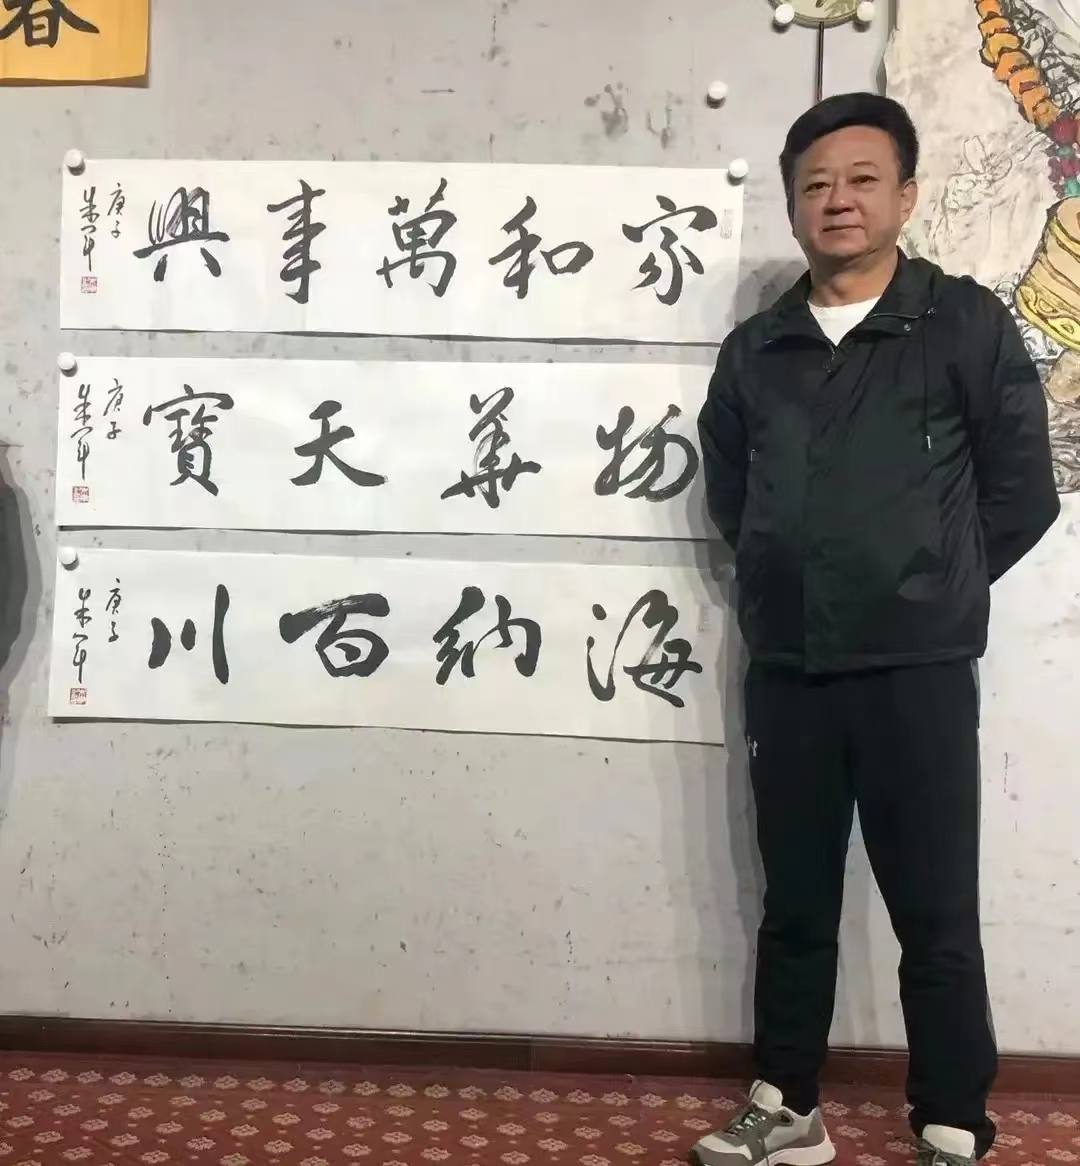 春
家和萬事興
庚子
朱军
物華天寶
庚子
朱军
海納百川
庚子
朱军